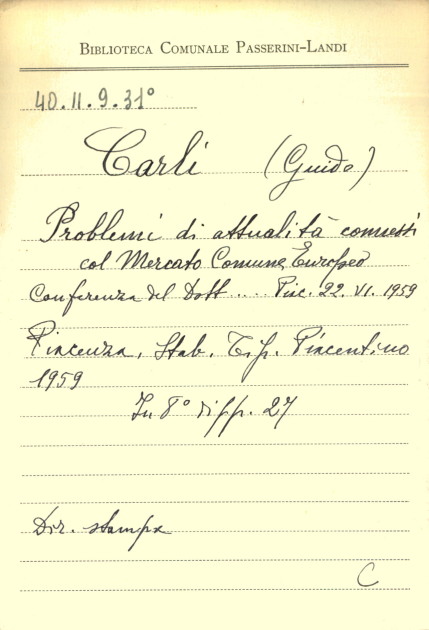 BIBLIOTECA COMUNALE PASSERINI-LANDI
40.II.9.31°
Carli (Guido)
Problemi di attualità connessi
col Mercato Comune Europeo
Conferenza del Dott.... Pic. 22.VI.1959
Piacenza, Stab. Tip. Piacentino
1959
In 8° di pp. 27
Dir. stampa
C